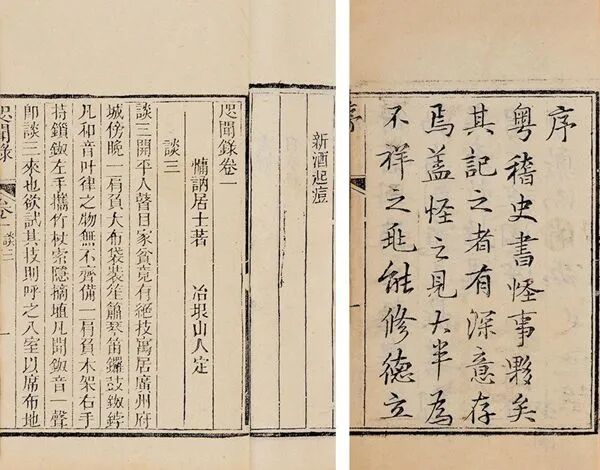 序
粵稽史書怪事夥矣
其記之者有深意存
焉蓋怪之見大半為
不祥之兆能修德立
新酒起痘
咫聞錄卷一
慵訥居士著 冶垠山人定
談三
談三開平人瞽目家貧竟有絕技寓居廣州府
城傍晚一肩負大布袋裝笙簫琴笛鑼鼓鈸
凡和音叶律之物無不齊備一肩負木架右手
持鎖鈸左手攜竹杖索隱摘埴凡聞鈸音一聲
卽談三來也欲試其技則呼之入室以席布地
咫聞錄 卷一 談三 一